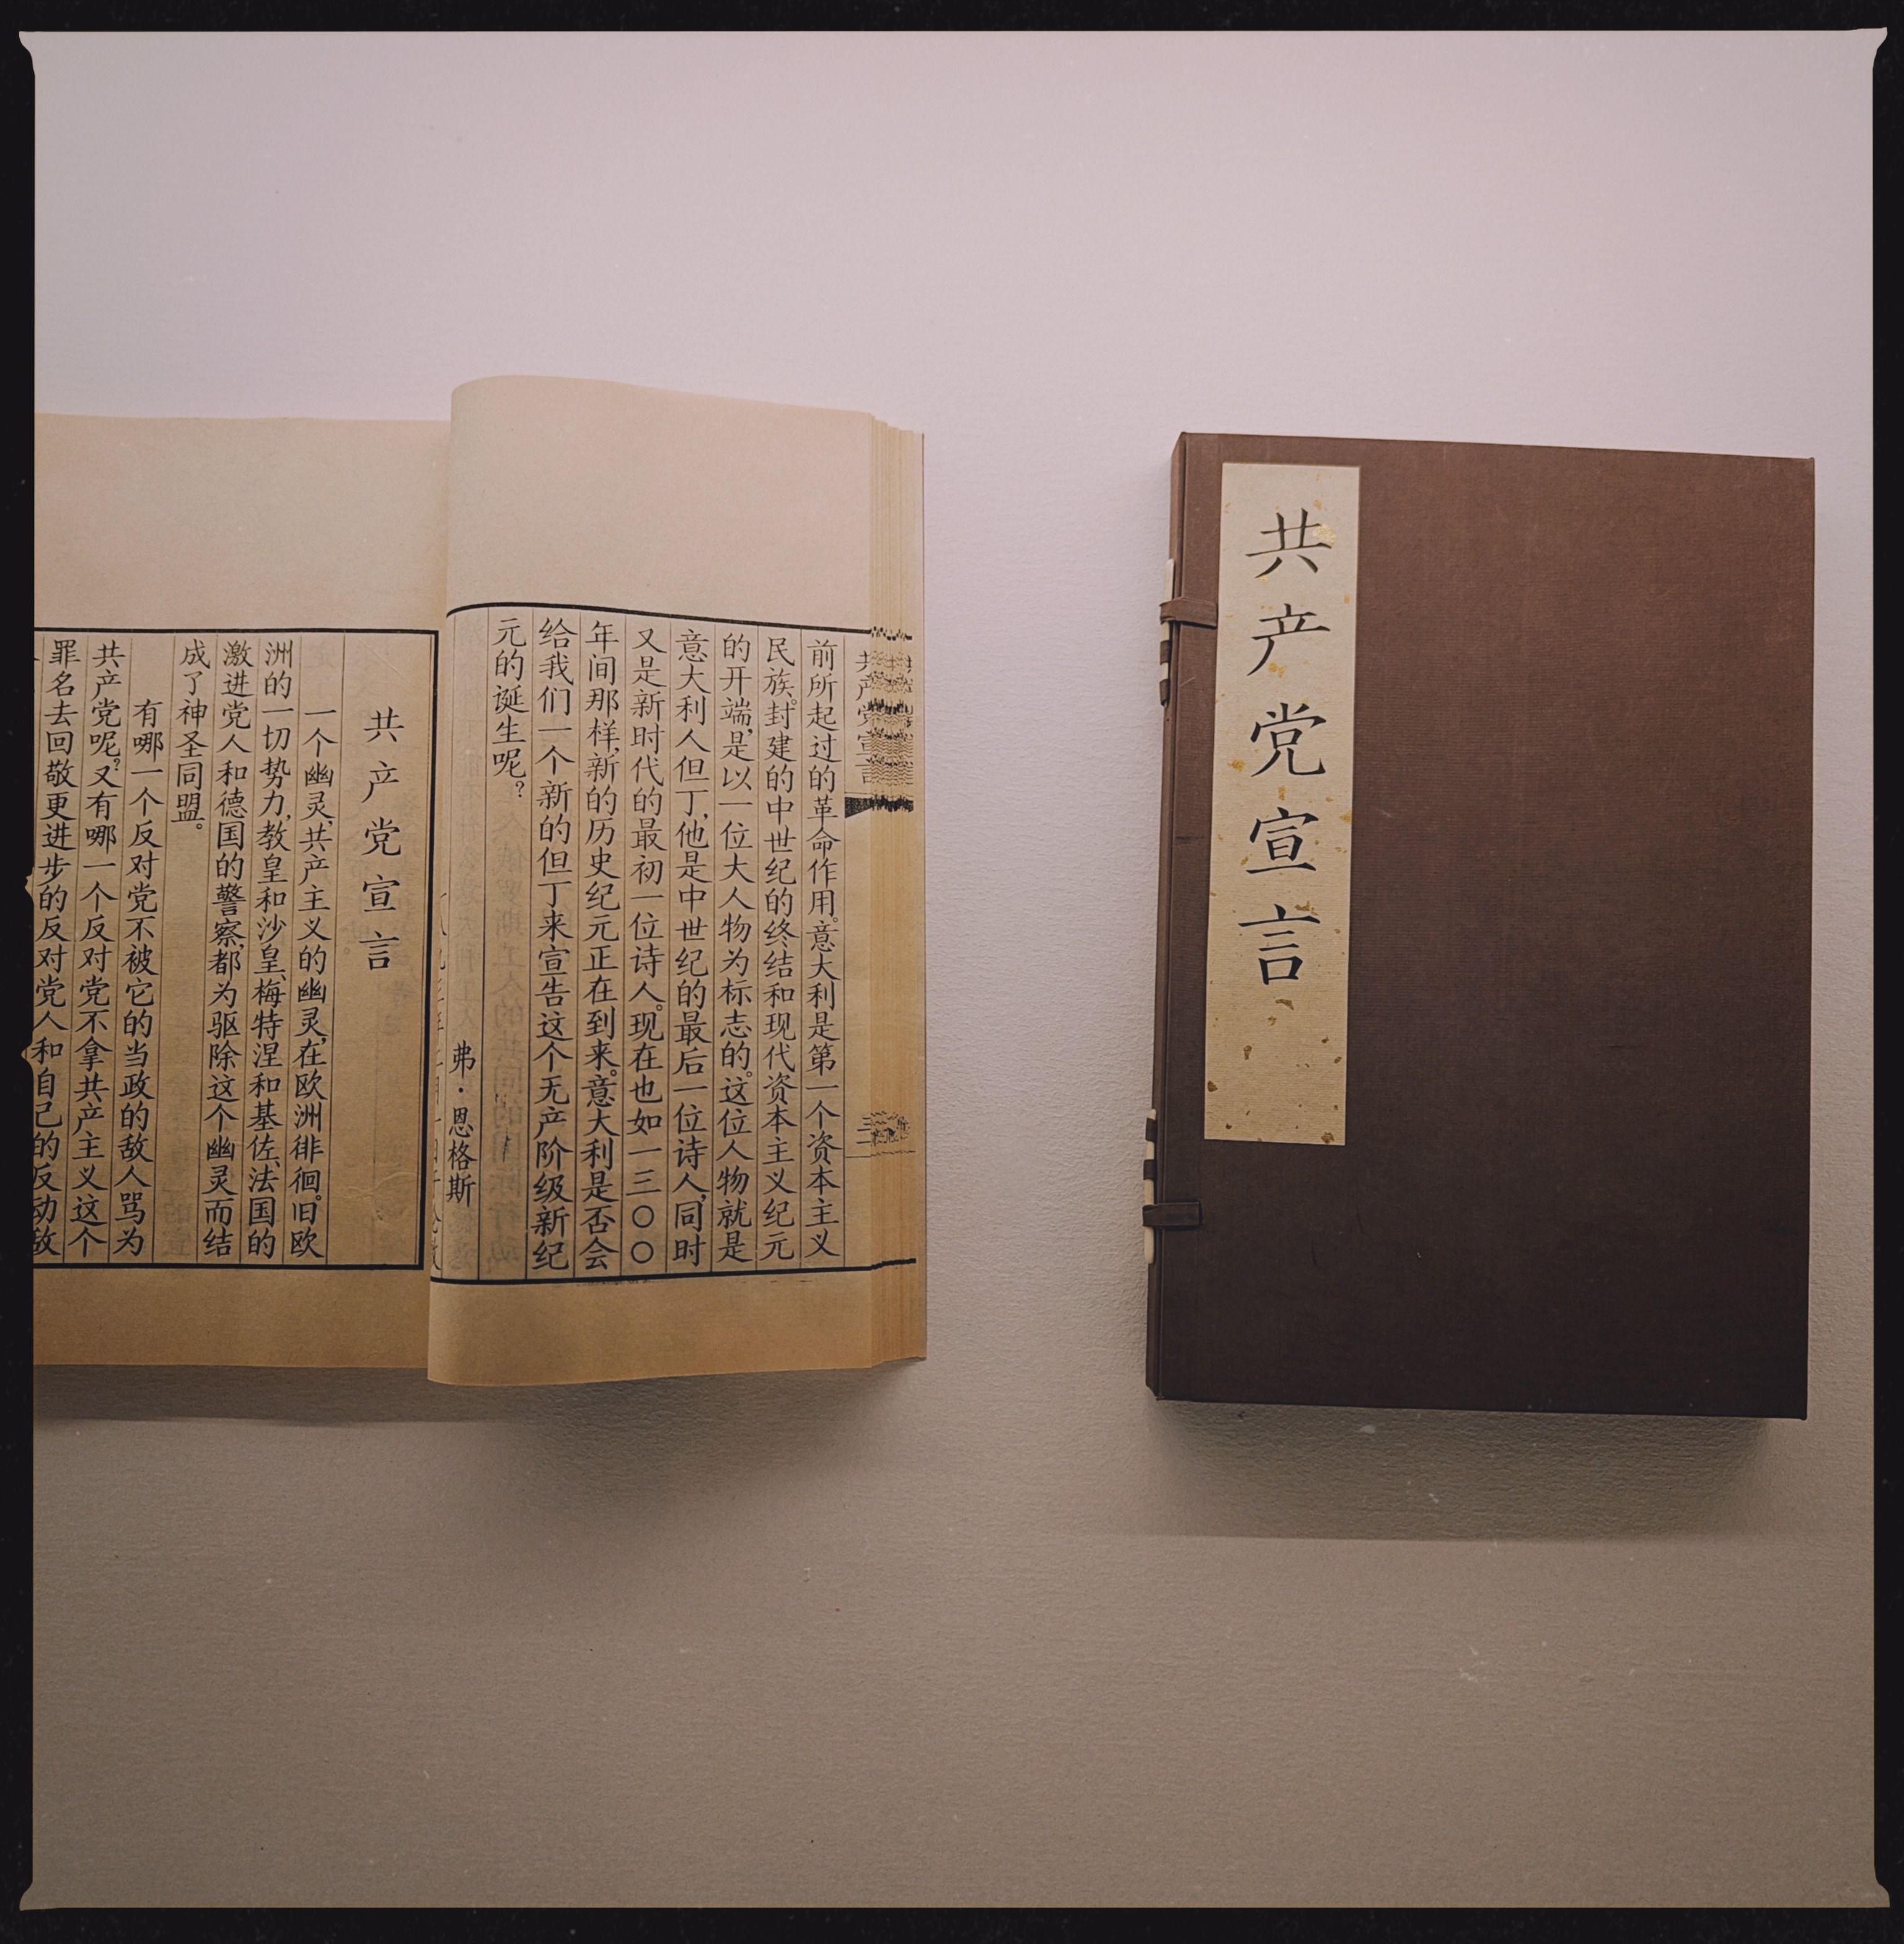 前所起过的革命作用。意大利是第一个资本主义
民族。封建的中世纪的终结和现代资本主义纪元
的开端,是以一位大人物为标志的。这位人物就是
意大利人但丁,他是中世纪的最后一位诗人,同时
又是新时代的最初一位诗人。现在也如一三〇〇
年间那样,新的历史纪元正在到来。意大利是否会
给我们一个新的但丁来宣告这个无产阶级新纪
元的诞生呢?
弗·恩格斯
共产党宣言
一个幽灵,共产主义的幽灵,在欧洲徘徊。旧欧
洲的一切势力,教皇和沙皇、梅特涅和基佐、法国的
激进党人和德国的警察,都为驱除这个幽灵而结
成了神圣同盟。
有哪一个反对党不被它的当政的敌人骂为
共产党呢?又有哪一个反对党不拿共产主义这个
罪名去回敬更进步的反对党人和自己的反动敌
共产党宣言